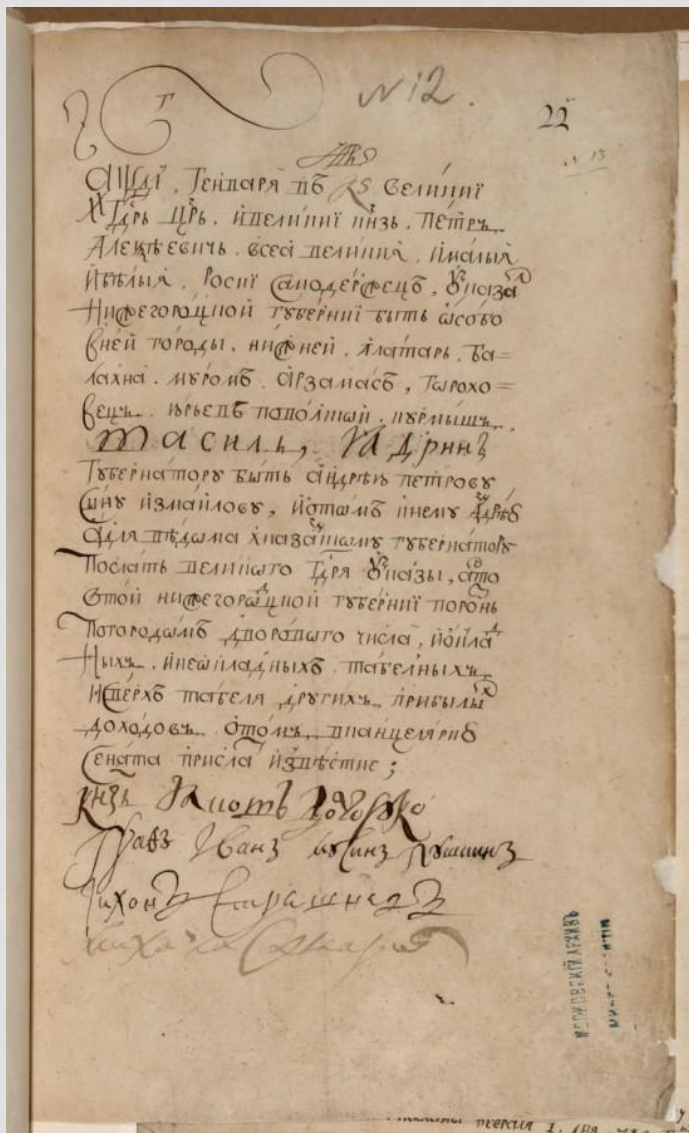 N 12.
22
N 13
҂АѰДІ, Генваря въ КЅ Великиі
Гдрь Црь, и великиі кнзь, Петръ
Алеѯѣевичь, всеа великия, и малыя
и бѣлыя, Росиі Самодержецъ, Указал
Нижегороцкой губерниі быть особо
в ней городы, нижней, алатарь, ба=
лахна, муромъ, арзамасъ, горохо=
вецъ, юрьевъ поволской, курмышъ,
Василь, Ядринъ
Губернатору быть андрѣю петрову
сыну измайлову, и о томъ к нему
а для вѣдома х казанскому губернатору
Послать великого Гдря Указы, а что
с той нижегороцкой губерниі порознь
по городамъ дворового числа, и оклад
ных, и неокладныхъ табелных
и сверхъ табеля других прибылых
доходовъ, о томъ в канцелярию
Сената прислать извѣстие;
князь Долгоруко
Графъ Иванъ Мусинъ Пушкинъ
Тихонъ Стрешневъ
Михаила Самарин
МОСКОВСКІЙ АРХИВЪ